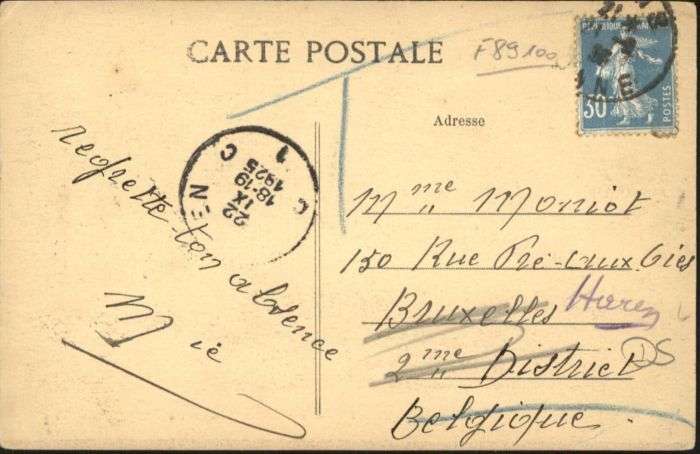 CARTE POSTALE
F89100
Adresse
30
POSTES
NE
22
IX
18-19
1925
C 1 C
EN
regrette ton absence
Mie
Mme Moniot
150 Rue Pré-aux Oies
Bruxelles Haren
2me District DS
Belgique.
T